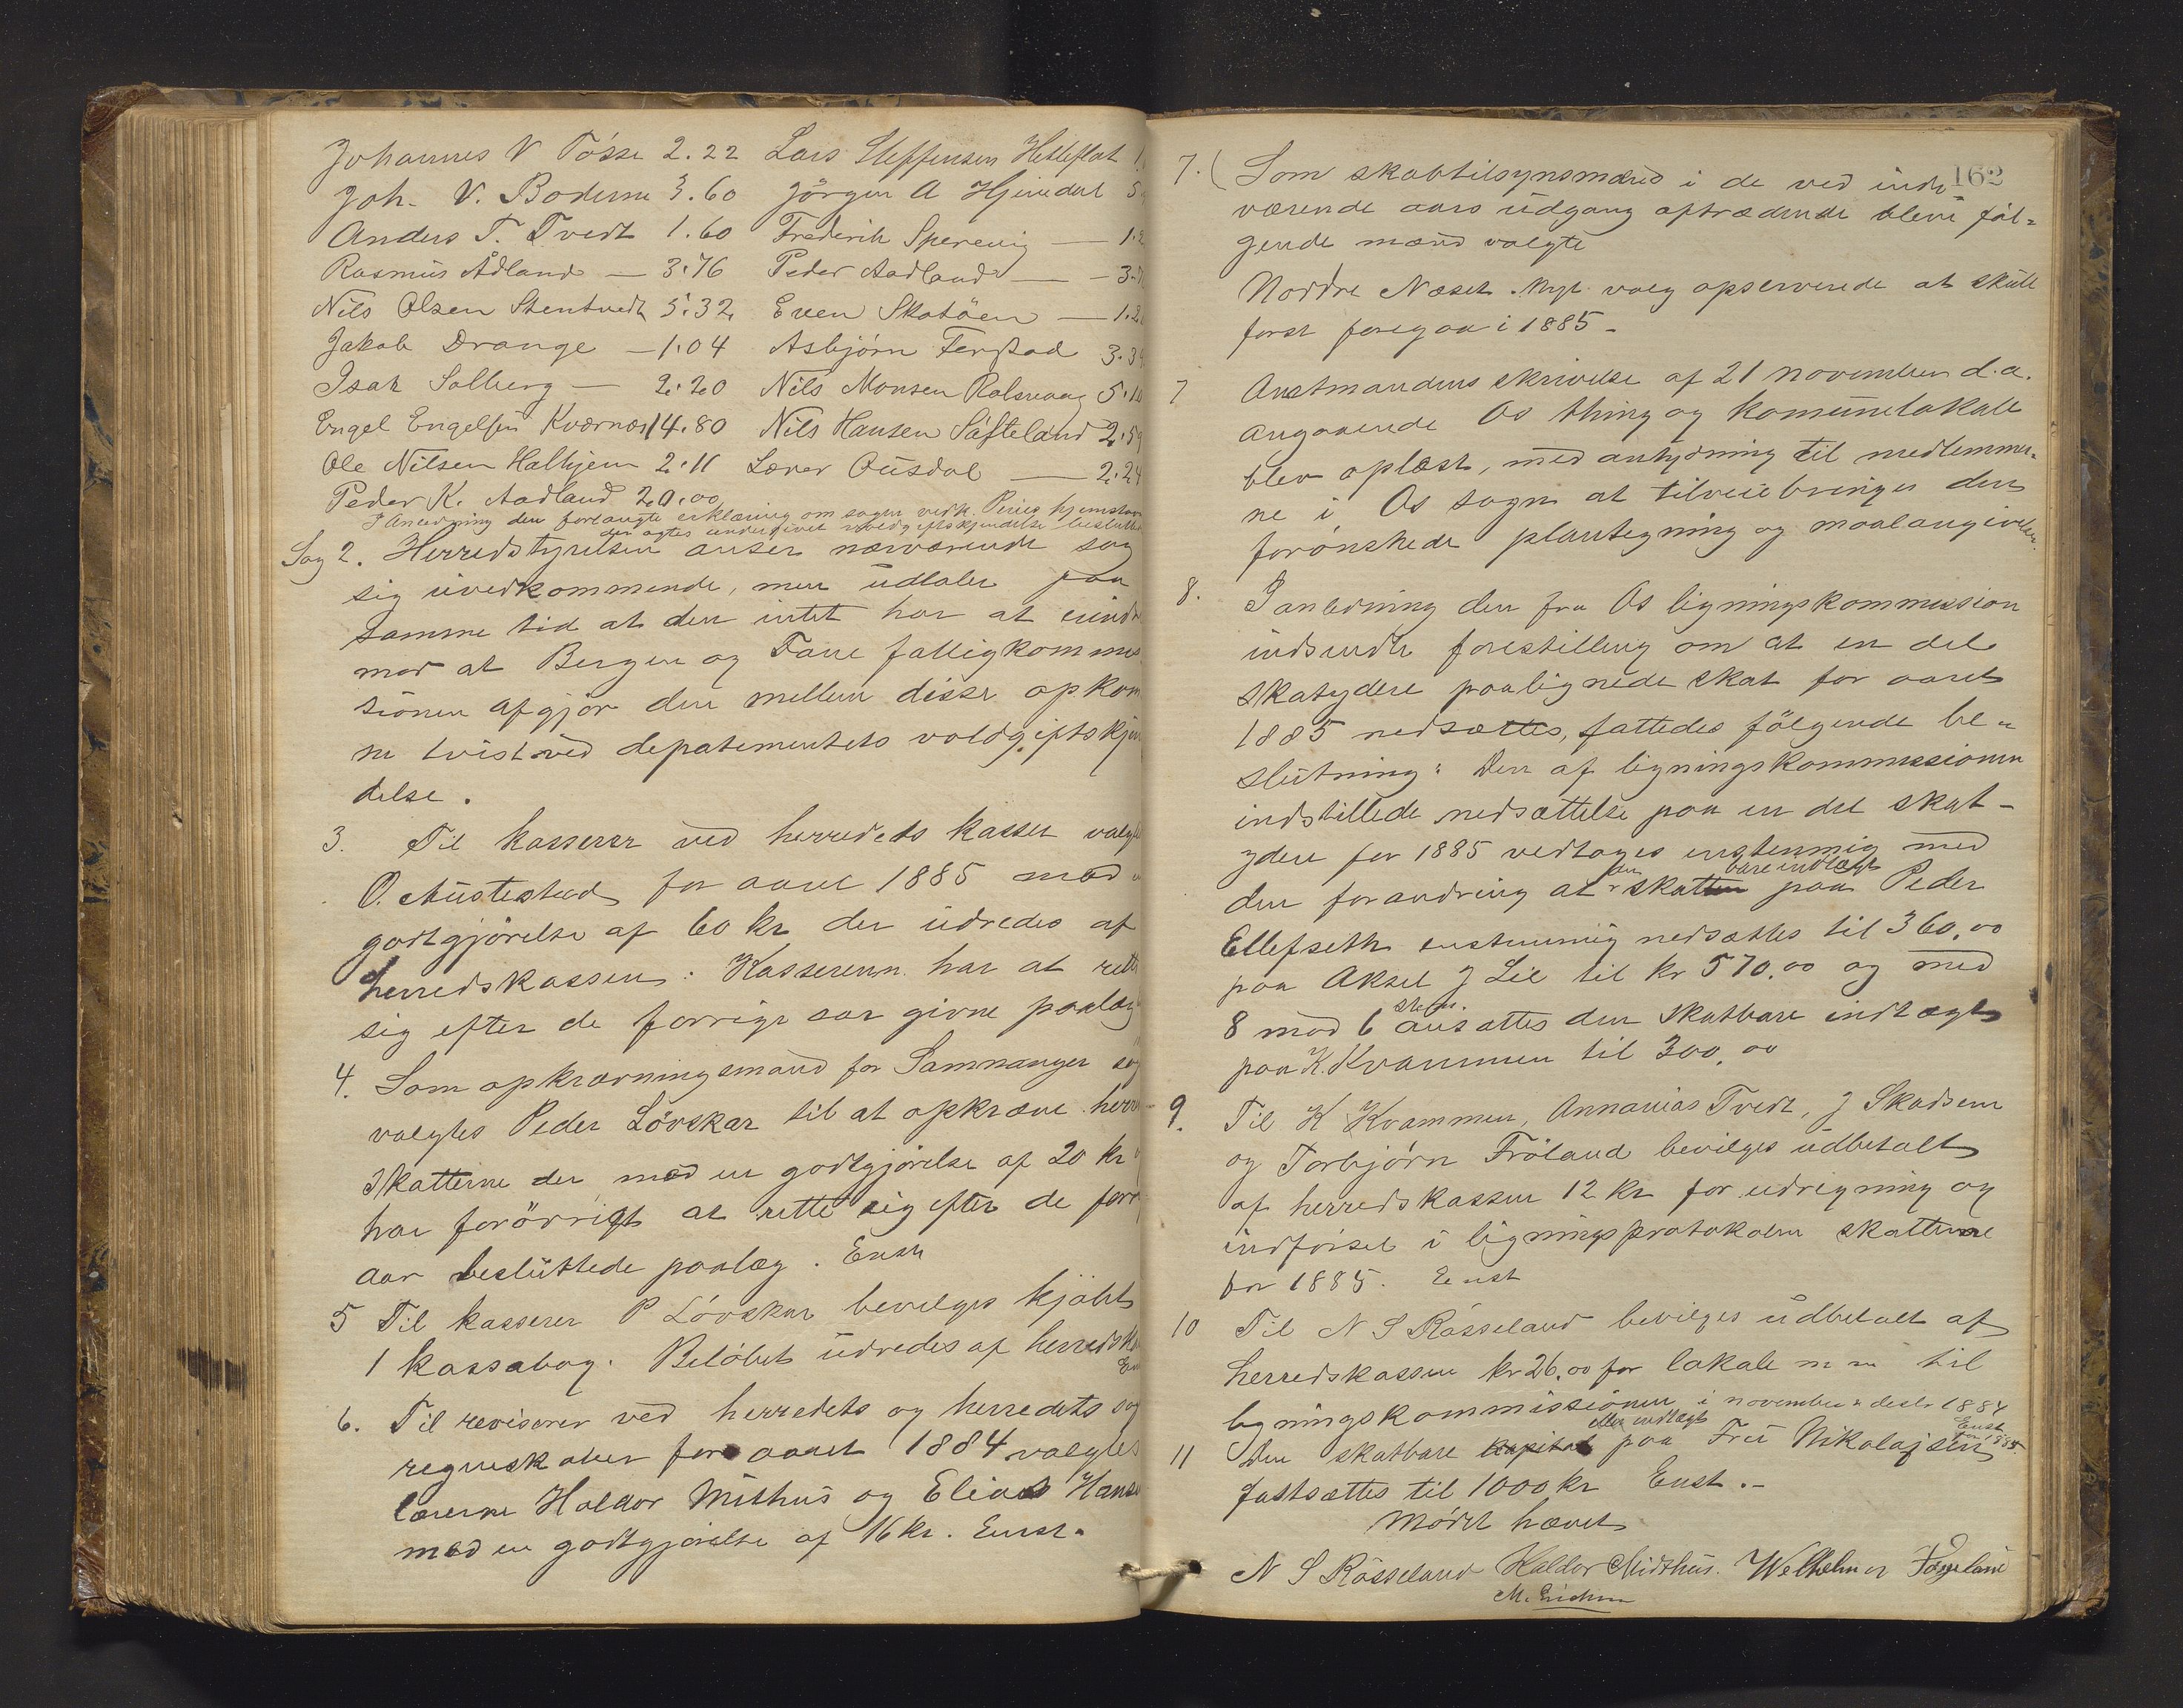 Johannes V Tösse 2.22 Lars Steffensen Hetleflot 1.
Joh. V. Boderne 3.60 Jörgen A Hjelledal 5
Anders T. Tvedt 1.60 Frederik Sperevig — 1.2
Rasmus Ådland — 3.76 Peder Aadland — 3.7
Nils Olsen Stentvedt 5.32 Even Skatöen — 1.2
Jakob Drange — 1.04 Asbjørn Ferstad 3.3
Isak Solberg — 2.20 Nils Monsen Rolsvaag 5.10
Engel Engelsen Kværnes 14.80 Nils Hansen Søfteland 2.59
Ole Nilsen Halhjem 2.11 Lærer Ousdal — 2.24
Peder K. Aadland 20.00
I Anledning den forlangte erklæring om sagen vedk. hjemstavn
der agtes undergivet voldgiftskjendelse besluttet
Sag 2. Herredstyrelsen anser nærværende sag
sig uvedkommende, men udtaler paa
samme tid at den intet har at indv
mod at Bergen og Fane fattigkommis
sionen afgjør den mellem disse opkom
ne tvist ved depatementets voldgiftskjen
delse.
3. Til kasserer ved herredets kasser valgtes
O. Mustestad for aaret 1885 mod
godtgjörelse af 60 kr der udredes af
herredskassen. Kassereren har at rette
sig efter de forrige aar givne paalæg
4. Som opkrævningsmand for Samnanger sog
valgtes Peder Lövskar til at opkræve herre
skatterne der mod en godtgjørelse af 20 kr
har forövrigt at rette sig efter de forr
aar besluttede paalæg. Enst
5 Til kasserer P Lövskar bevilges kjøbt
1 kassabog. Beløbet udredes af herredska
Ens
6. Til revisorer ved herredets og herredets sog
regnskaber for aaret 1884 valgtes
lærerne Haldor Mithus og Elias Hans
mod en godtgjørelse af 16 kr. Enst.
162
7. ( Som skabtilsynsmænd i de ved inde
værende aars udgang aftrædende bleve föl=
gende mænd valgte
Nordre Neset. Nyt valg opserverede at skulle
först foregaa i 1885.
7 Amtmandens skrivelse af 21 november d.a.
angaaende Os thing og komunelokale
blev oplæst, med antydning til medlemmer=
ne i Os sogn at tilveiebringes den
forønskede plantegning og maalangivelse.
8. I anledning den fra Os ligningskommission
indsendte forestilling om at en del
skatydere paalignede skat for aaret
1885 nedsættes, fattedes fölgende be=
slutning: Den af ligningskommissionen
indstillede nedsættelse paa en del skat-
ydere for 1885 vedtages enstemmig med
den bare indtægt
den forandring at skatten paa Peder
Ellefseth enstemmig nedsættes til 360,00
paa Aksel J Lie til kr 570.00 og med
stem.
8 mod 6 ansættes den skatbare indtægt
paa K. Kvammen til 300,00
9. Til K Kvammen, Annanias Tvedt, J Skadsem
og Torbjørn Fröland bevilges udbetalt
af herredskassen 12 kr for udregning og
indførsel i ligningsprotokolen skatterne
for 1885. Enst
10 Til N S Røsseland bevilges udbetalt af
herredskassen kr 26,00 for lokale m m til
ligningskommissionen i november & desbr 1884
Enst
11 Den skatbare kapital indtægt paa Fru Nikolajsen for 1885
fastsættes til 1000 kr Enst.-
Mødet hævet
N S Røsseland Haldor Midthus. Welhelm
M. Erichsen